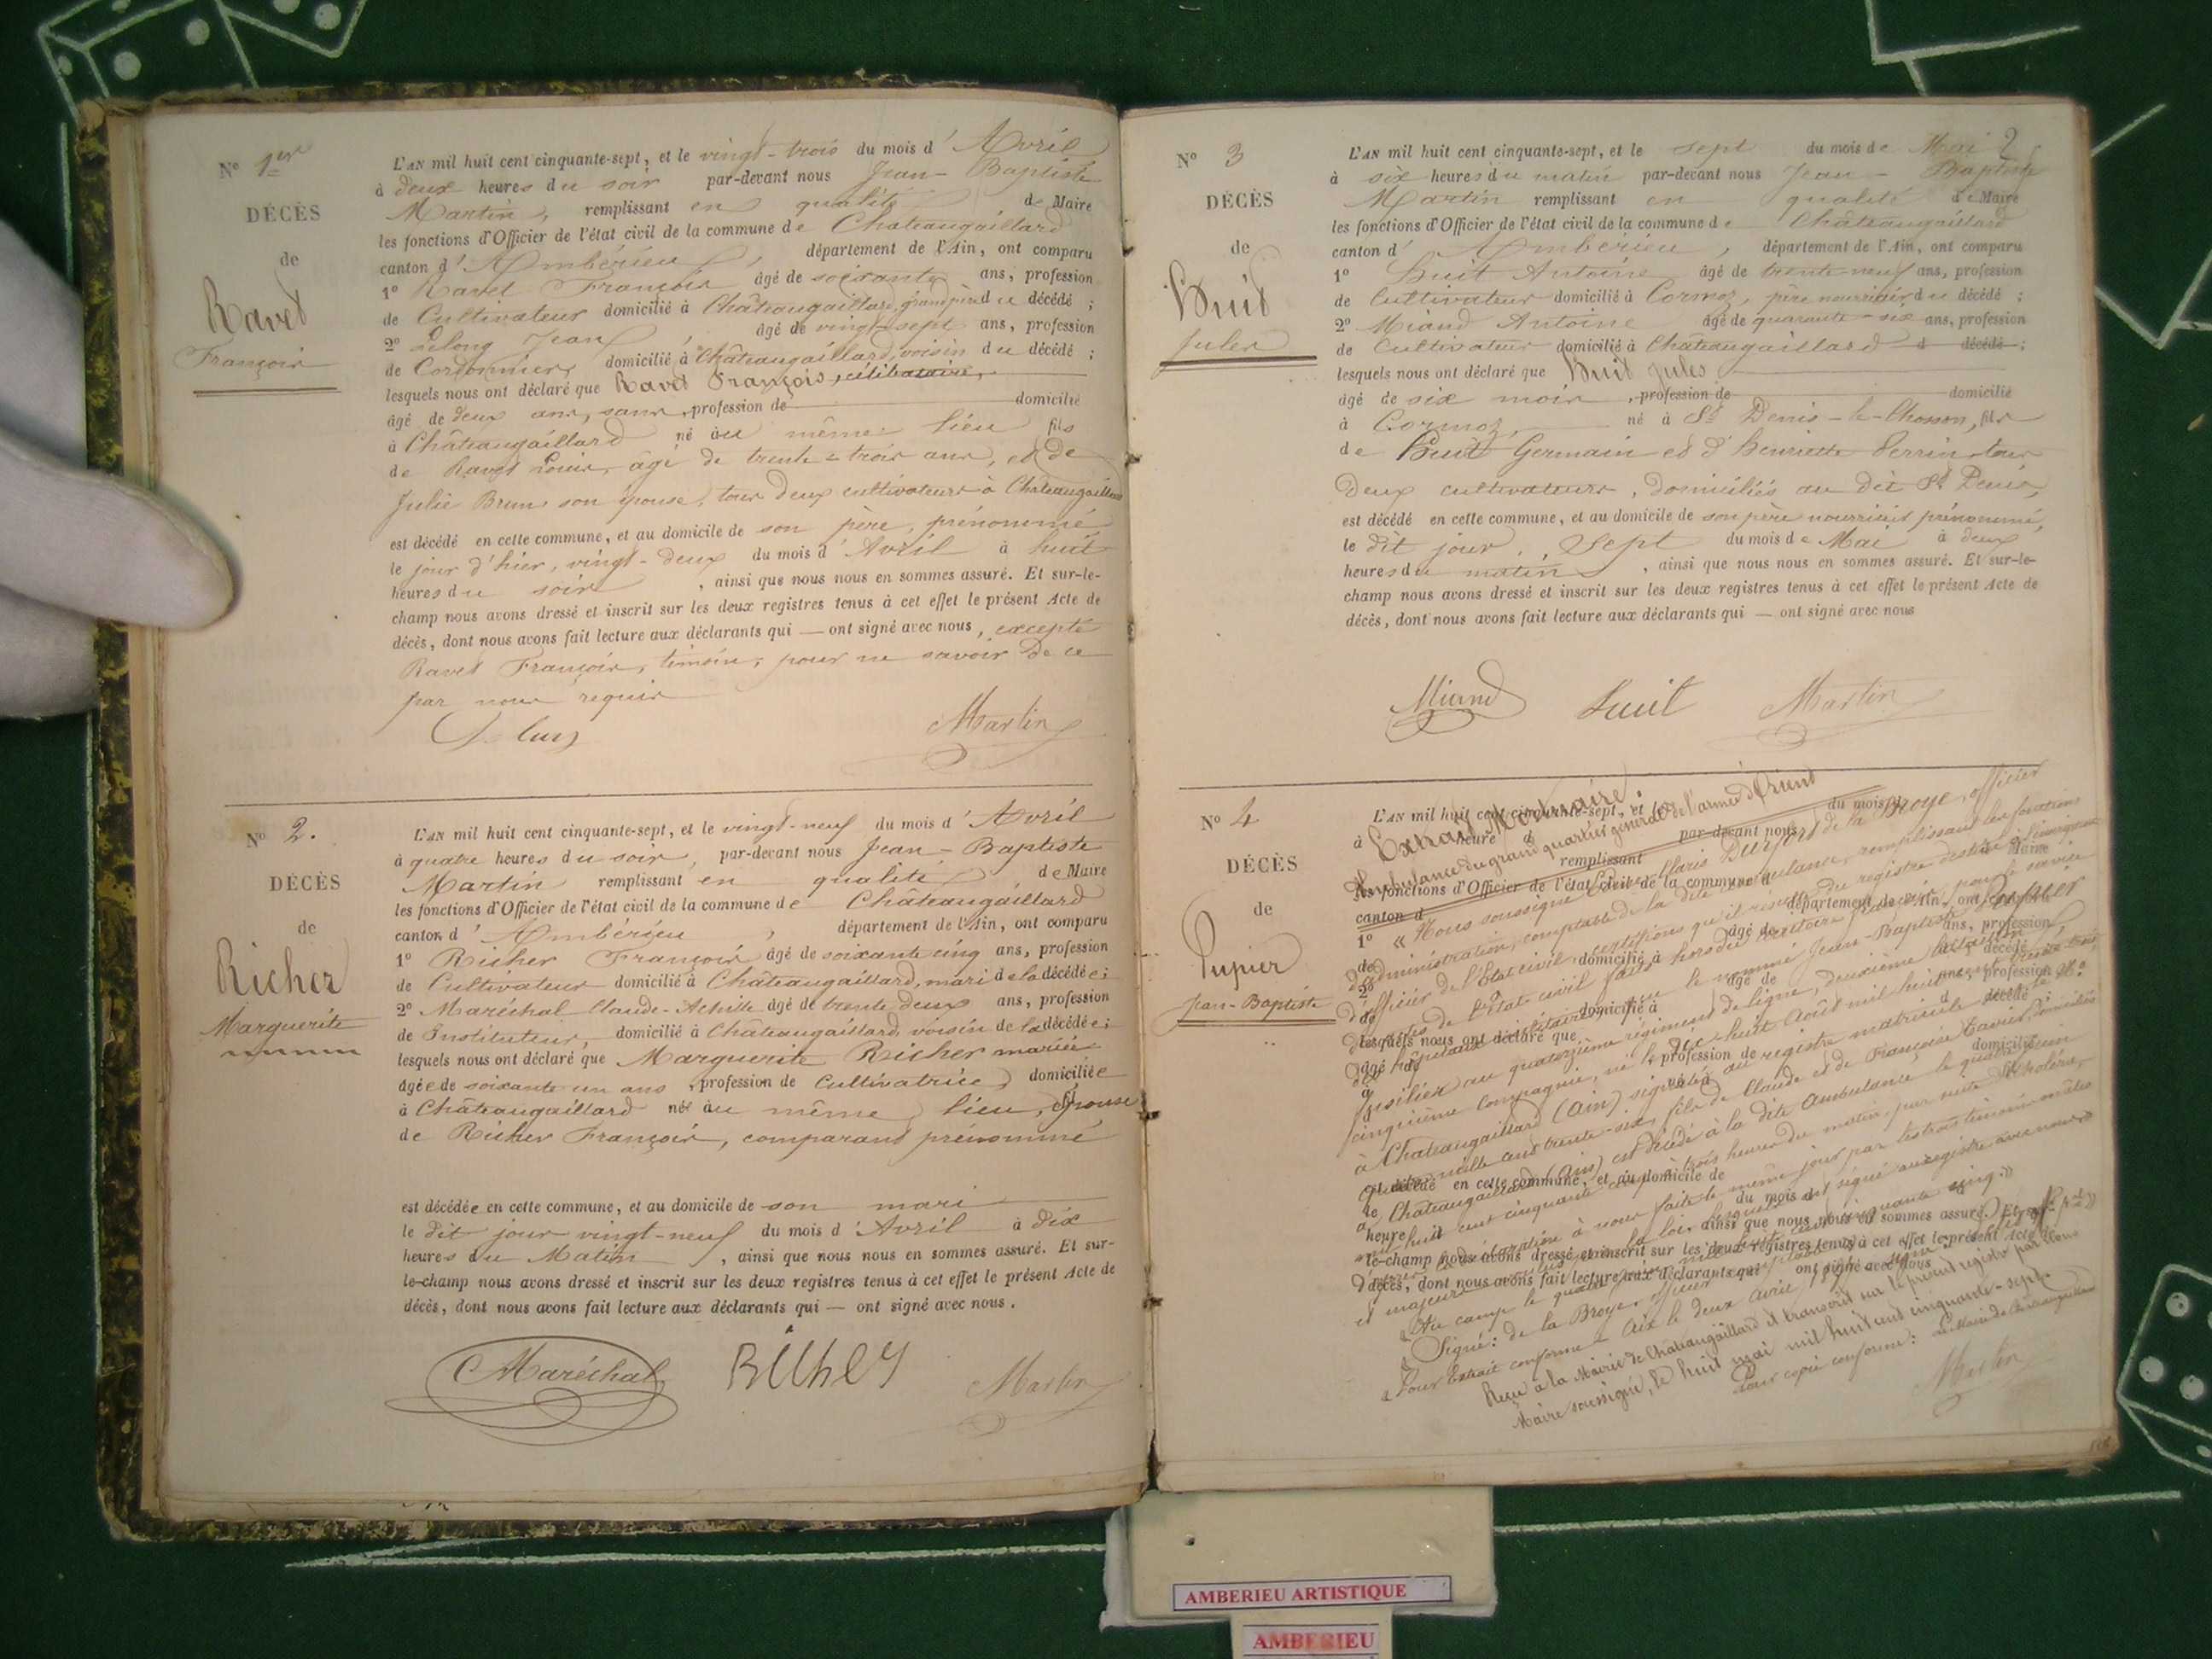 N° 1er
DÉCÈS
de
Ravet
François
L'AN mil huit cent cinquante-sept, et le vingt-trois du mois d'Avril
à deux heures du soir par-devant nous Jean-Baptiste
Martin, remplissant en qualité de Maire
les fonctions d'Officier de l'état civil de la commune de Chateaugaillard
canton d'Ambérieu, département de l'Ain, ont comparu
1° Ravet François âgé de soixante ans, profession
de Cultivateur domicilié à Châteaugaillard, grand père du décédé ;
2° Lelong Jean, âgé de vingt-sept ans, profession
de Cordonnier, domicilié à Châteaugaillard, voisin du décédé ;
lesquels nous ont déclaré que Ravet François, célibataire,
âgé de deux ans, sans profession de domicilié
à Châteaugaillard né au même lieu fils
de Ravet Louis, âgé de trente-trois ans, et de
Julie Brun son épouse, tous deux cultivateurs à Chateaugaillard
est décédé en cette commune, et au domicile de son père, prénommé
le jour d'hier, vingt-deux du mois d'Avril à huit
heures du soir, ainsi que nous nous en sommes assuré. Et sur-le-
champ nous avons dressé et inscrit sur les deux registres tenus à cet effet le présent Acte de
décès, dont nous avons fait lecture aux déclarants qui — ont signé avec nous, excepté
Ravet François, témoin, pour ne savoir de ce
par nous requis
Martin
N° 2.
DÉCÈS
de
Richer
Marguerite
L'AN mil huit cent cinquante-sept, et le vingt-neuf du mois d'Avril
à quatre heures du soir, par-devant nous Jean-Baptiste
Martin remplissant en qualité de Maire
les fonctions d'Officier de l'état civil de la commune de Châteaugaillard
canton d'Ambérieu, département de l'Ain, ont comparu
1° Richer François âgé de soixante cinq ans, profession
de Cultivateur domicilié à Châteaugaillard, mari de la décédée ;
2° Maréchal Claude-Achille âgé de trente deux ans, profession
de Instituteur, domicilié à Châteaugaillard, voisin de la décédée ;
lesquels nous ont déclaré que Marguerite Richer mariée
âgée de soixante un ans, profession de Cultivatrice, domiciliée
à Châteaugaillard née au même lieu, épouse
de Richer François, comparant prénommé
est décédée en cette commune, et au domicile de son mari
le dit jour vingt-neuf du mois d'Avril à dix
heures du Matin, ainsi que nous nous en sommes assuré. Et sur-
le-champ nous avons dressé et inscrit sur les deux registres tenus à cet effet le présent Acte de
décès, dont nous avons fait lecture aux déclarants qui — ont signé avec nous.
Maréchal Richer Martin
N° 3
DÉCÈS
de
Huit
Jules
2
L'AN mil huit cent cinquante-sept, et le sept du mois de Mai
à six heures du matin par-devant nous Jean-Baptiste
Martin remplissant en qualité de Maire
les fonctions d'Officier de l'état civil de la commune de Châteaugaillard
canton d'Ambérieu, département de l'Ain, ont comparu
1° Huit Antoine âgé de trente-neuf ans, profession
de Cultivateur domicilié à Cormoz, père nourricier du décédé ;
2° Miand Antoine âgé de quarante-six ans, profession
de Cultivateur domicilié à Châteaugaillard d décédé ;
lesquels nous ont déclaré que Huit Jules
âgé de six mois, profession de domicilié
à Cormoz, né à St Denis-le-Chosson, fils
de Huit Germain et d'Henriette Perrin, tous
deux cultivateurs, domiciliés au dit St Denis,
est décédé en cette commune, et au domicile de son père nourricier prénommé,
le dit jour, sept du mois de Mai à deux
heures du matin, ainsi que nous nous en sommes assuré. Et sur-le-
champ nous avons dressé et inscrit sur les deux registres tenus à cet effet le présent Acte de
décès, dont nous avons fait lecture aux déclarants qui — ont signé avec nous
Miand Huit Martin
N° 4
DÉCÈS
de
Pupier
Jean-Baptiste
Extrait Mortuaire.
Ambulance du grand quartier général de l'armée d'Orient
« Nous soussigné Durfort de la Broye, officier
d'administration, comptable de la dite ambulance, remplissant les fonctions
d'officier de l'Etat civil, certifions qu'il résulte du registre destiné à l'enregistrement
des actes de l'état civil faits hors du territoire français, pour le service
des hôpitaux militaires, que le nommé Jean-Baptiste Pupier
fusilier au quatorzième régiment de ligne, deuxième bataillon,
cinquième compagnie, né le dix-huit Août mil huit cent trente trois
à Chateaugaillard (Ain) signalé au registre matricule sous le N°
quatre mille cent trente-six, fils de Claude et de Françoise Tavier, domiciliés
à Chateaugaillard (Ain) est décédé à la dite ambulance le quatre juin
mil huit cent cinquante cinq à trois heures du matin, par suite de choléra,
déclaration à nous faite le même jour par les trois témoins mâles
et majeurs la loi, lesquels ont signé au registre avec nous »
« Au camp le quatre juin mil huit cent cinquante cinq. »
« Signé : de la Broye, officier
« Pour Extrait conforme Aix le deux avril
Reçu à la Mairie de Chateaugaillard et transcrit sur le présent registre par Nous
Maire soussigné, le huit mai mil huit cent cinquante-sept.
Pour copie conforme : Le Maire de Chateaugaillard
Martin
AMBERIEU ARTISTIQUE
AMBERIEU